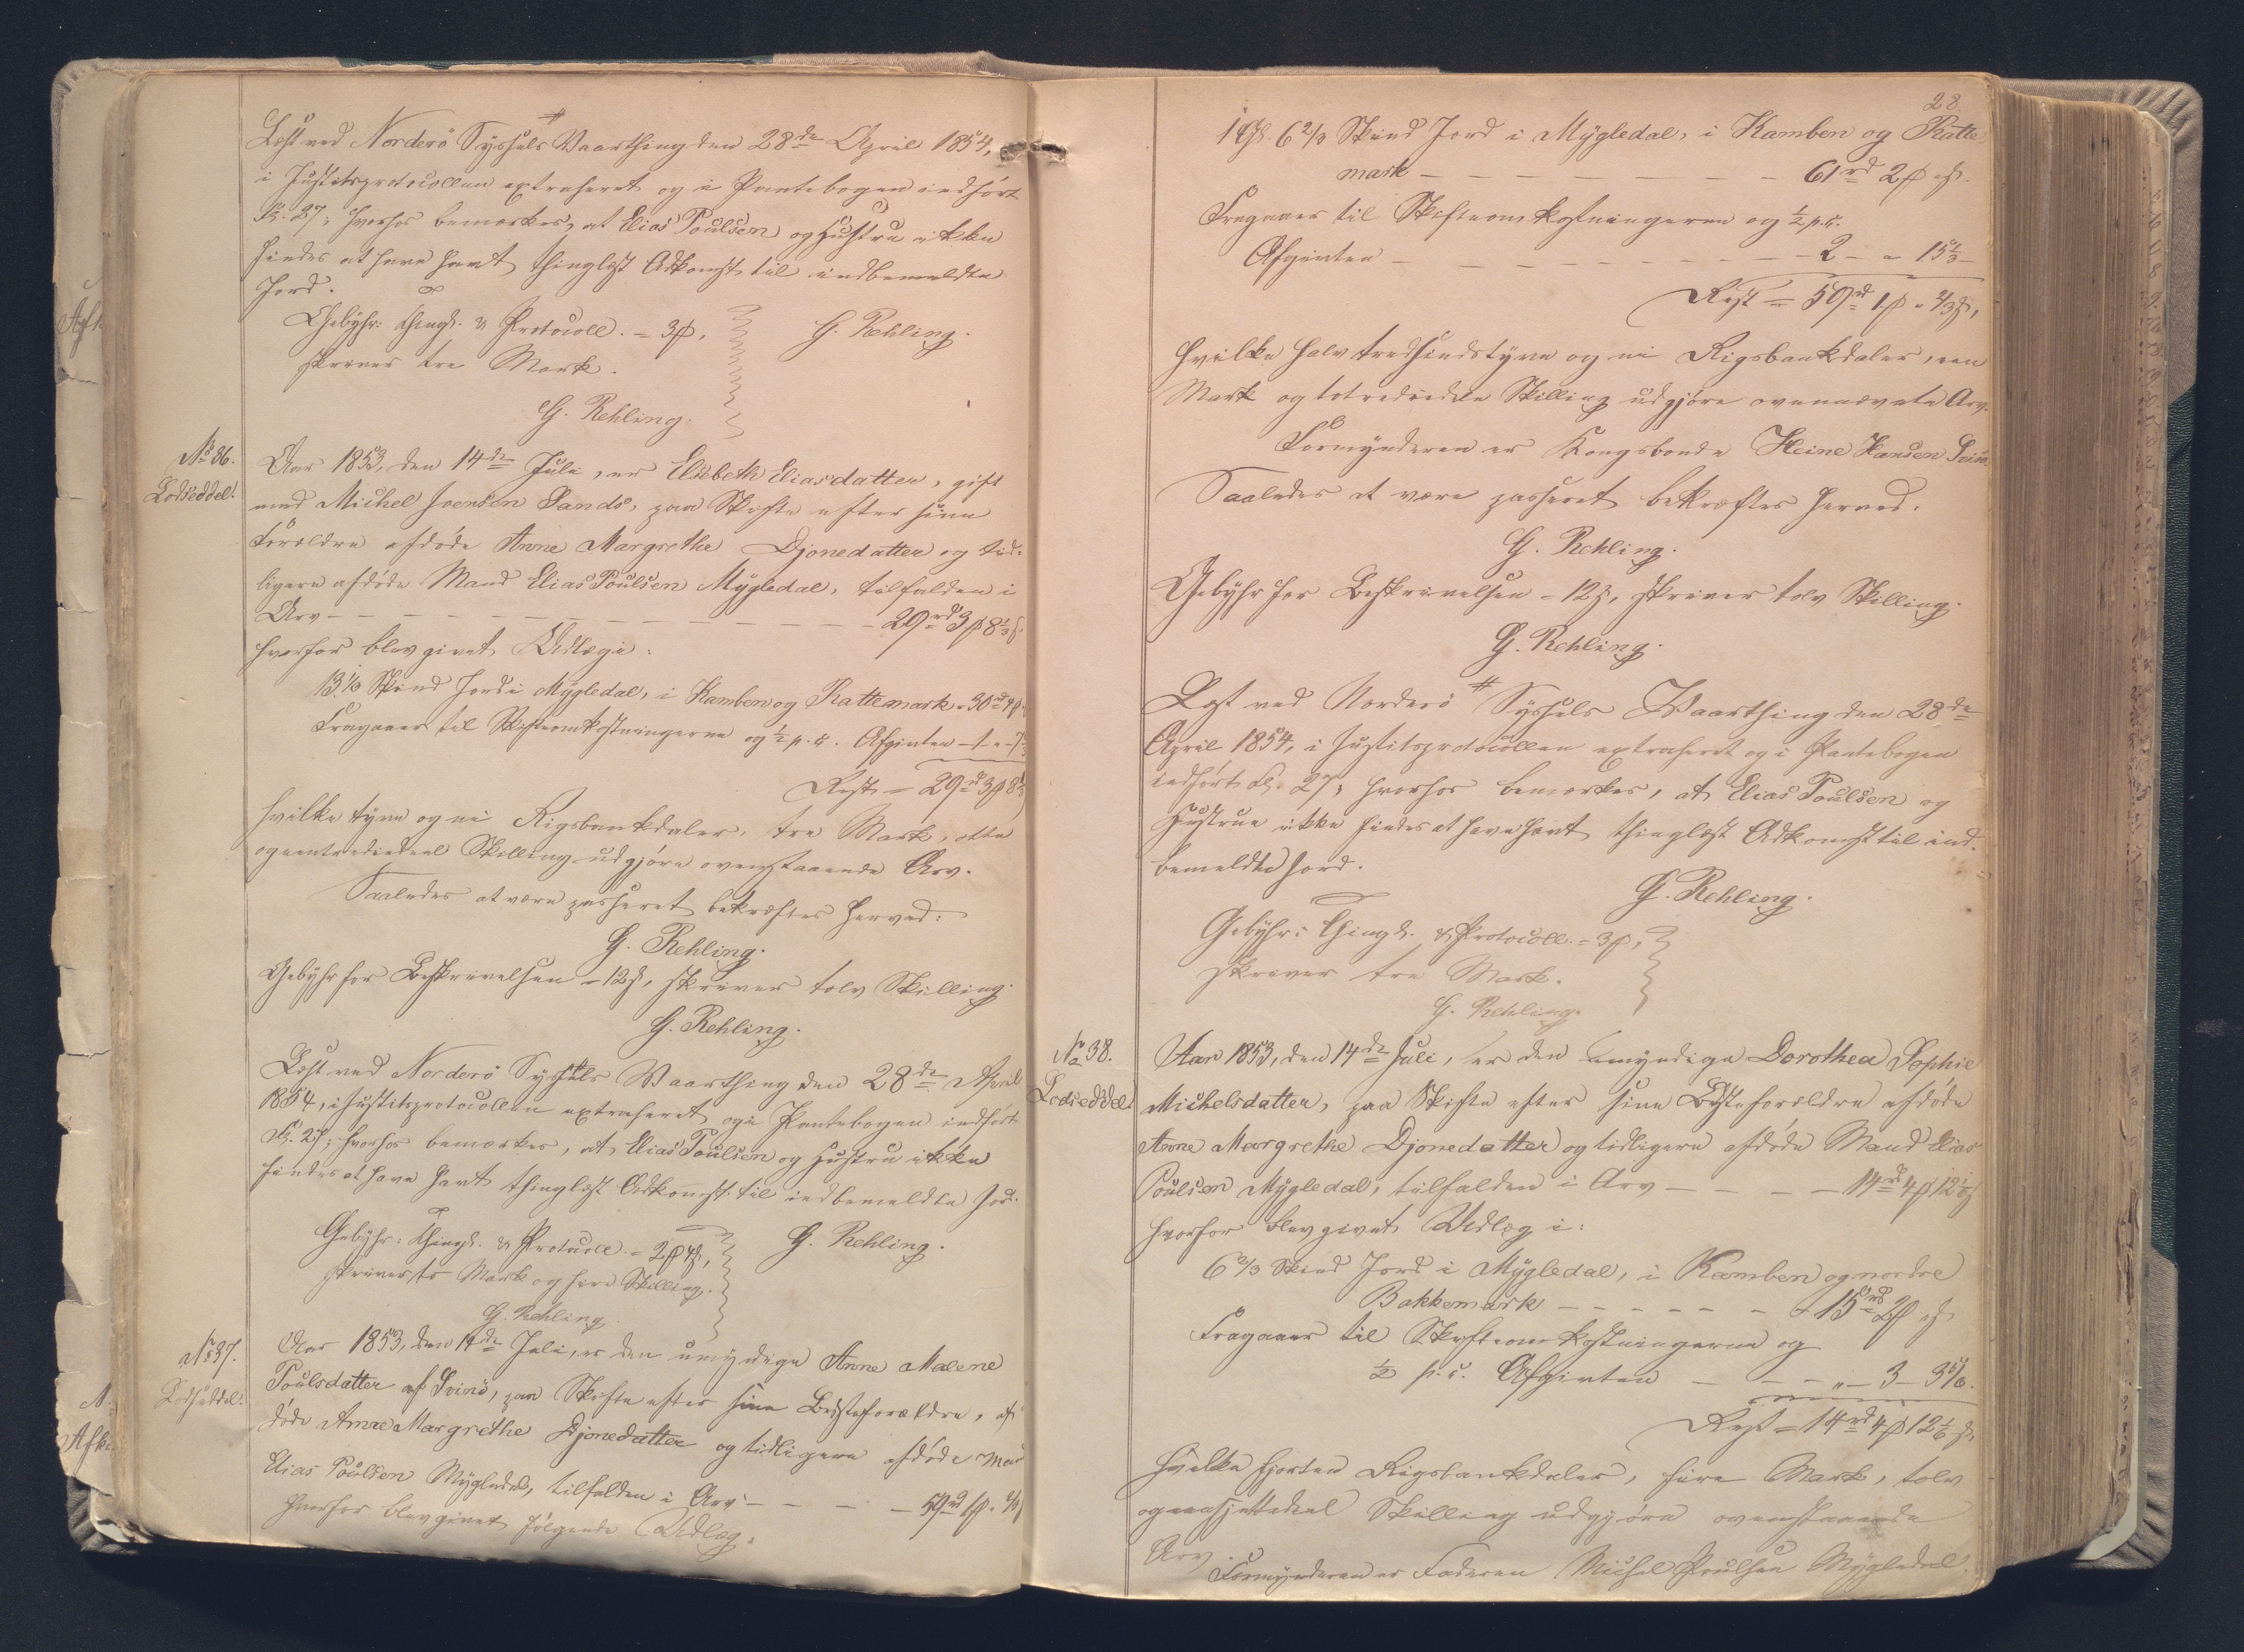 Læst ved Norderö Syssels Vaarthing den 28de April 1854,
i Justitsprotocollen extraheret og i Pantebogen indført
Fol. 27; hvorhos bemærkes, at Elias Poulsen og Hustru ikke
findes at have havt thinglæst Adkomst til indbemeldte
Jord.
Gebyhr: Thingl. & Protocoll. = 3 ₻,
skriver tre Mark.
G. Rehling.
G. Rehling.
No 36.
Lodseddel.
Aar 1853, den 14de Juli, er Elsebeth Eliasdatter, gift
med Michel Joensen Sands, paa Skifte efter sine
Forældre afdøde Anne Margrethe Djonedatter og tid-
ligere afdøde Mand Elias Poulsen Mygledal, tilfalden i
Arv - - - 29rd 3 ₻ 8⅓ s.
hvorfor blev givet Udlæg i:
13⅓ Skind Jord i Mygledal, i Kamben og Rattemark = 30rd 4 ₻
Fragaaer til Skifteomkostningerne og ½ p.c. Afgivten - 1 -
Rest = 29rd 3 ₻ 8⅓
hvilke tyve og ni Rigsbankdaler, tre Mark, otte
og eentrediedeel Skilling udgjøre ovenstaaende Arv.
Saaledes at være passeret bekræftes herved:
G. Rehling.
Gebyhr for Beskrivelsen = 12 s, skriver tolv Skilling.
G. Rehling.
Læst ved Norderö Syssels Vaarthing den 28de April
1854, i Justitsprotocollen extraheret og i Pantebogen indført
Fol. 27; hvorhos bemærkes, at Elias Poulsen og Hustru ikke
findes at have havt thinglæst Adkomst til indbemeldte Jord.
Gebyhr: Thingl. & Protocoll. = 2 ₻ 4 s,
skriver to Mark og fire Skilling.
G. Rehling.
G. Rehling.
No 37.
Lodseddel.
Aar 1853, den 14de Juli, er den umyndige Anne Malene
Poulsdatter af Svinö, paa Skifte efter sine Bedsteforældre, af-
døde Anne Margrethe Djonedatter og tidligere afdøde Mand
Elias Poulsen Mygledal, tilfalden i Arv - - - 59rd 1 ₻ " ⅔ s
hvorfor blev givet følgende Udlæg:
28
1 Gl. 6⅔ Skind Jord i Mygledal, i Kamben og Ratte-
mark - - - 61rd 2 ₻ " s.
Fragaaer til Skifteomkostningerne og ½ p.c.
Afgivten - - - 2 - " 15⅓ -
Rest = 59rd 1 ₻ " ⅔ s,
hvilke halvtredsindstyve og ni Rigsbankdaler, een
Mark og totrediedele Skilling udgjøre ovennævnte Arv.
Formynderen er Kongsbonde Heine Hansen Svinö.
Saaledes at være passeret bekræftes herved.
G. Rehling.
Gebyhr for Beskrivelsen = 12 s, skriver tolv Skilling.
G. Rehling.
Læst ved Norderö Syssels Vaarthing den 28de
April 1854, i Justitsprotocollen extraheret og i Pantebogen
indført Fol. 27; hvorhos bemærkes, at Elias Poulsen og
Hustrue ikke findes at have havt thinglæst Adkomst til ind-
bemeldte Jord.
G. Rehling.
Gebyhr: Thingl. & Protocoll. = 3 ₻,
skriver tre Mark.
G. Rehling.
No 38.
Lodseddel.
Aar 1853, den 14de Juli, er den umyndige Dorothea Sophie
Michelsdatter, paa Skifte efter sine Bedsteforældre afdøde
Anne Margrethe Djonedatter og tidligere afdøde Mand Elias
Poulsen Mygledal, tilfalden i Arv - - - 14rd 4 ₻ 12⅙ s
hvorfor blev givet Udlæg i:
6⅔ Skind Jord i Mygledal, i Kamben og nordre
Bakkemark - - - = 15rd 2 ₻ " s
Fragaaer til Skifteomkostningerne og
½ p.c. Afgivten - - - " - 3 - 3⅚.
Rest = 14rd 4 ₻ 12⅙ s,
hvilke fjorten Rigsbankdaler, fire Mark, tolv
og eensjettedeel Skilling udgjøre ovenstaaende
Arv.
Formynderen er Faderen Michel Poulsen Mygledal.